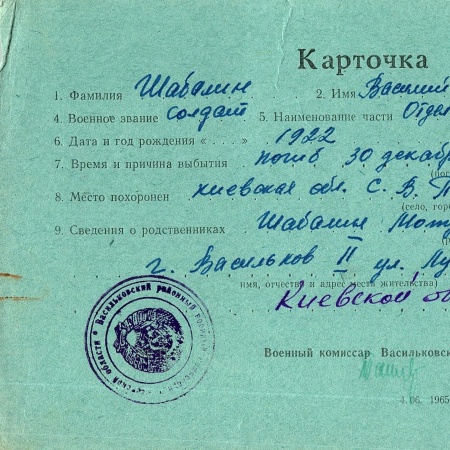 Карточка
1. Фамилия Шабалин 2. Имя Василий
4. Военное звание солдат 5. Наименование части Отде
6. Дата и год рождения « . . . . » 1922
7. Время и причина выбытия погиб 30 декаб
8. Место похоронен киевская обл. С. В.
(село, горо
9. Сведения о родственниках Шабалин
г. Васильков II ул.
имя, отчество и адрес места жительства)
Киевской об
Военный комиссар Васильковс
4.06. 1965